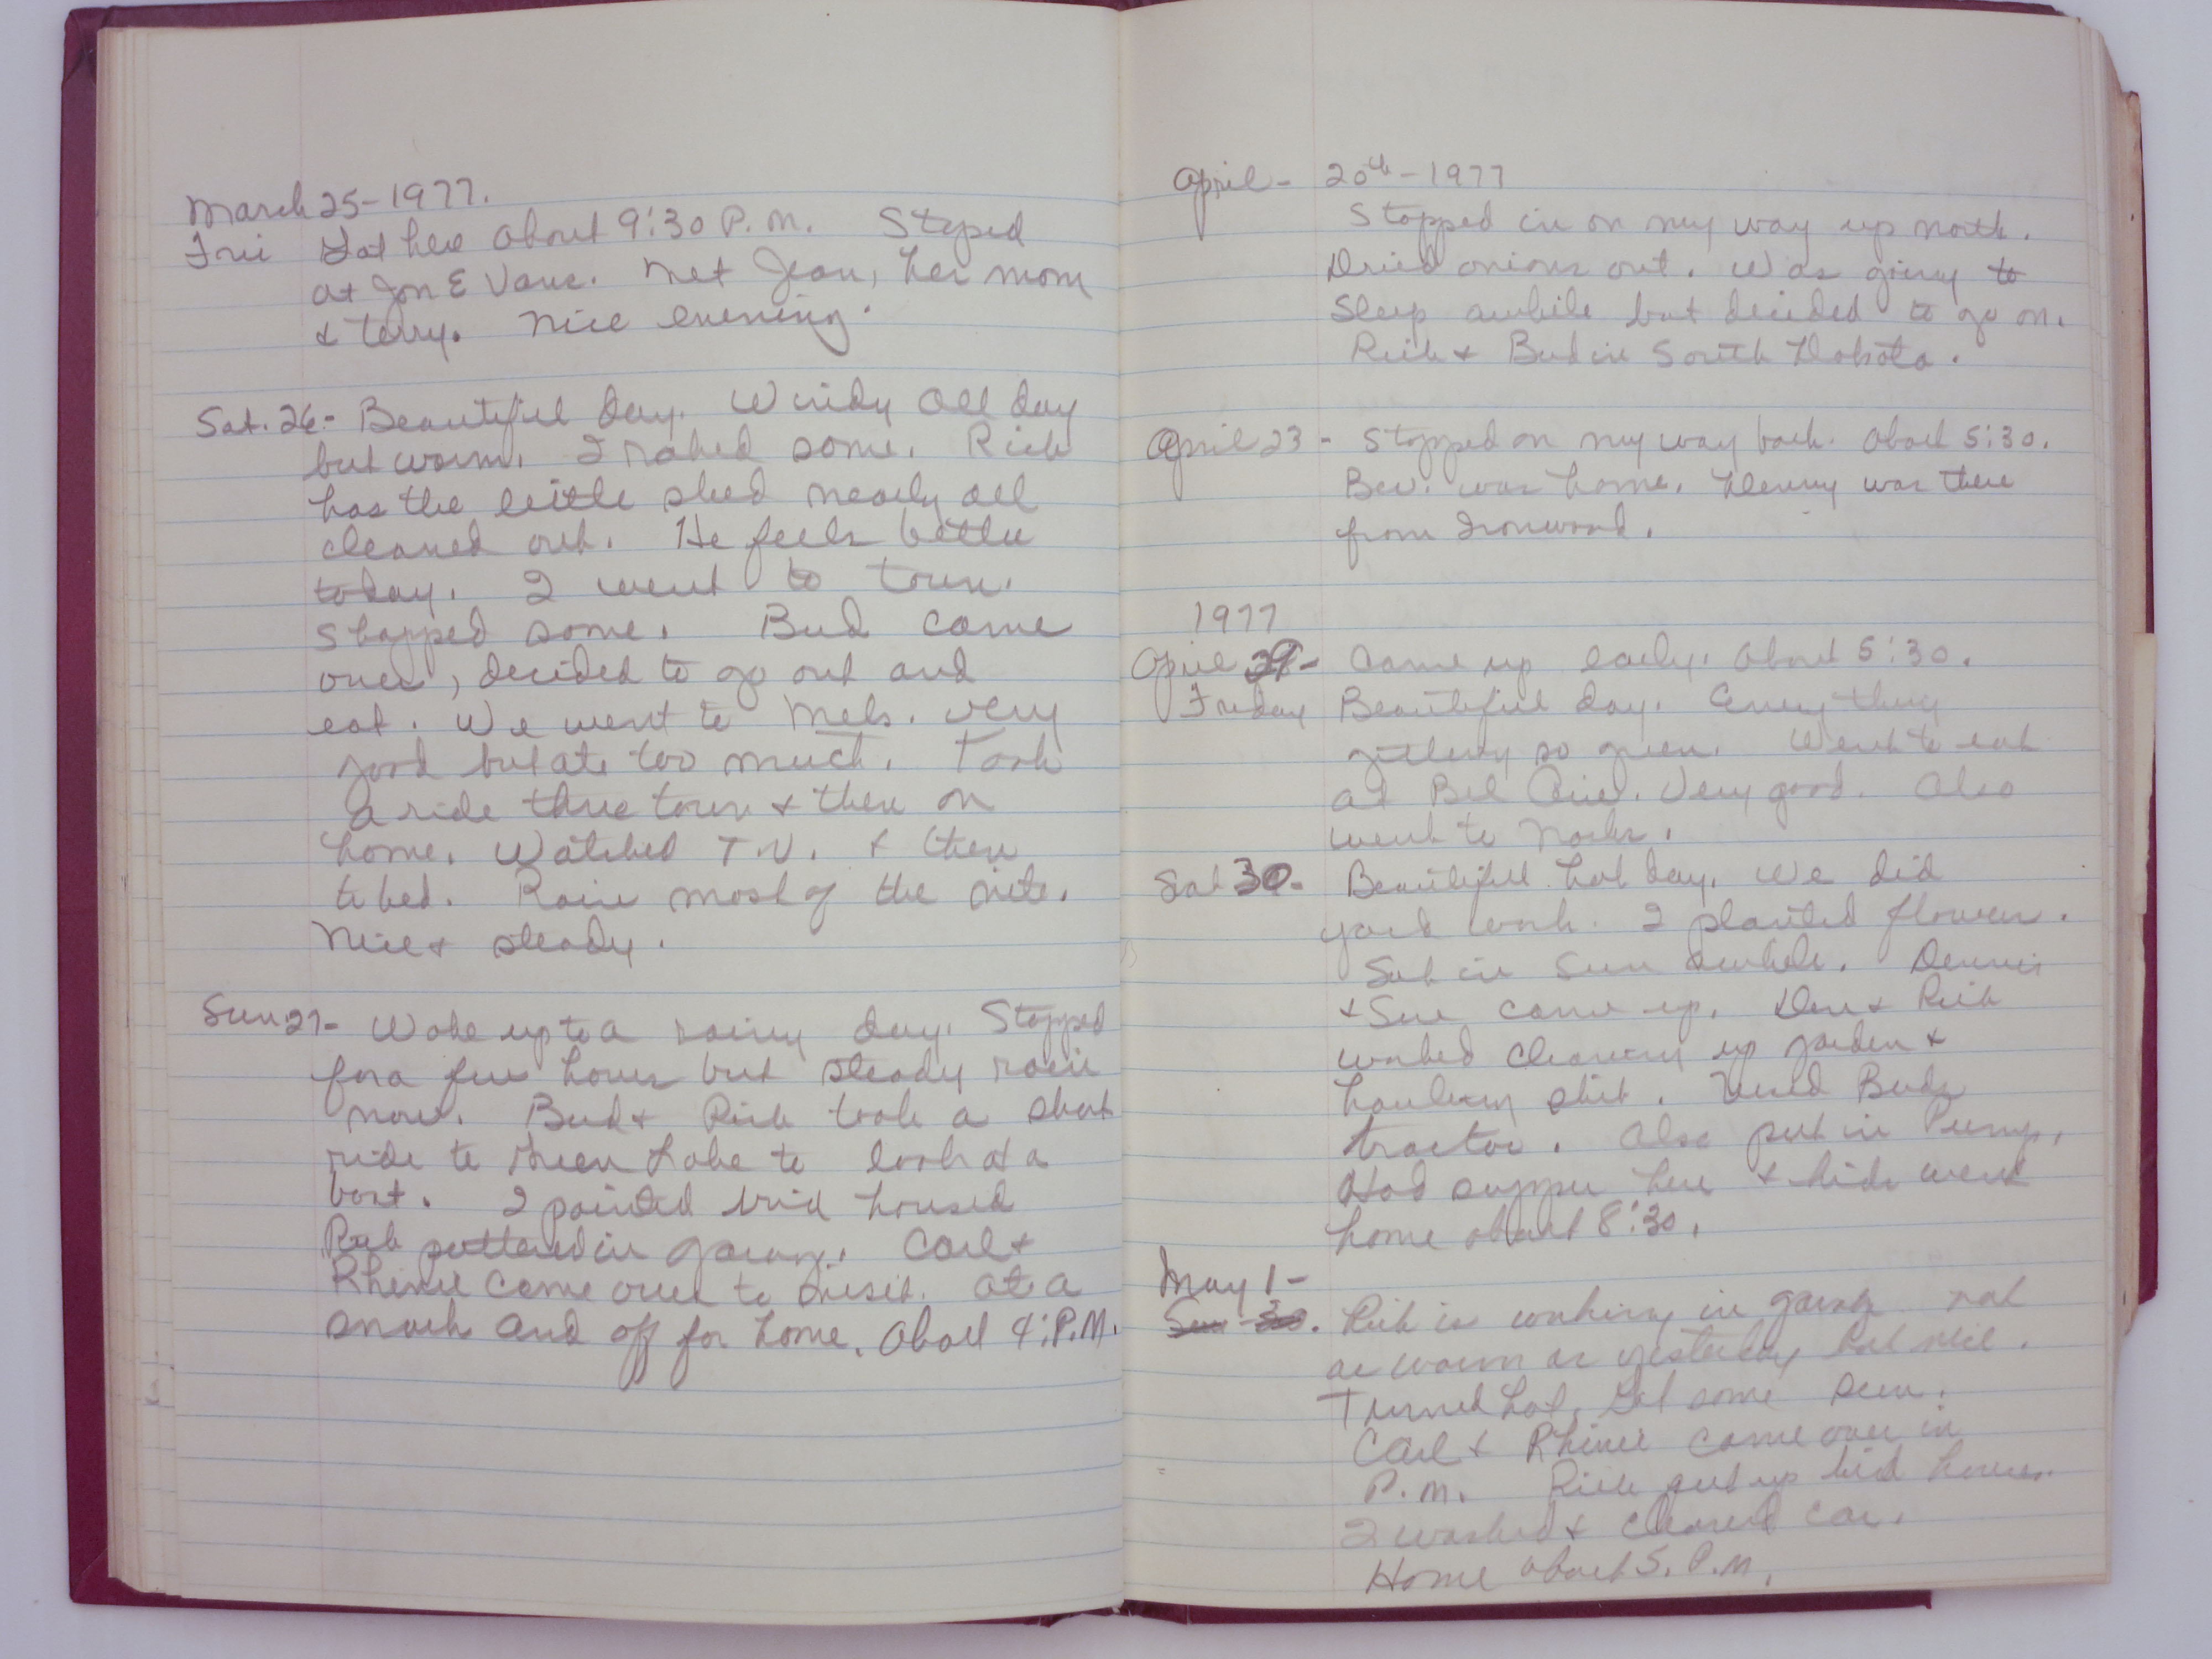 March 25-1977.
Fri Got here about 9:30 P.M. Stoped
at Jon & Vans. Met Jean, her mom
& terry. Nice evening.
Sat. 26- Beautiful day. Windy all day
but warm. I raked some. Rich
has the little shed nearly all
cleaned out. He feels better
today. I went to town.
Shopped some. Bud came
over, decided to go out and
eat. We went to Mels. very
good but ate too much. Took
a ride thru town & then on
home. Watched T.V. & then
to bed. Rain most of the nite.
Nice & steady.
Sun. 27- Woke up to a rainy day. Stopped
for a few hours but steady rain
now. Bud & Rich took a short
ride to Green Lake to look at a
boat. I painted bird houses
Rich puttered in garage. Carl &
Rhinie came over to visit. ate a
snack and off for home. about 4:P.M.
April- 20th-1977
Stopped in on my way up north.
Dried onions out. Was going to
sleep awhile but decided to go on.
Rich & Bud in South Dakota.
April 23- Stopped on my way back. about 5:30.
Bev. was home. Denny was there
from Ironwood.
1977
April 29- Came up early. about 5:30.
Friday Beautiful day. Every thing
getting so green. Went to eat
at Bel Aire. Very good. Also
went to
Sat 30- Beautiful hot day. We did
yard work. I planted flowers.
Sat in sun awhile. Dennis
& Sue came up. Den & Rich
worked cleaning up garden &
hauling shit. Used Buds
tractor. Also put in Pump.
Had supper here & kids went
home about 8:30.
May 1-
Sun 30. Rich is working in garage not
as warm as yesterday but nice.
Turned hot. Got some sun.
Carl & Rhinie came over in
P.M. Rich put up bird houses.
I washed & cleaned car.
Home about 5. P.M.